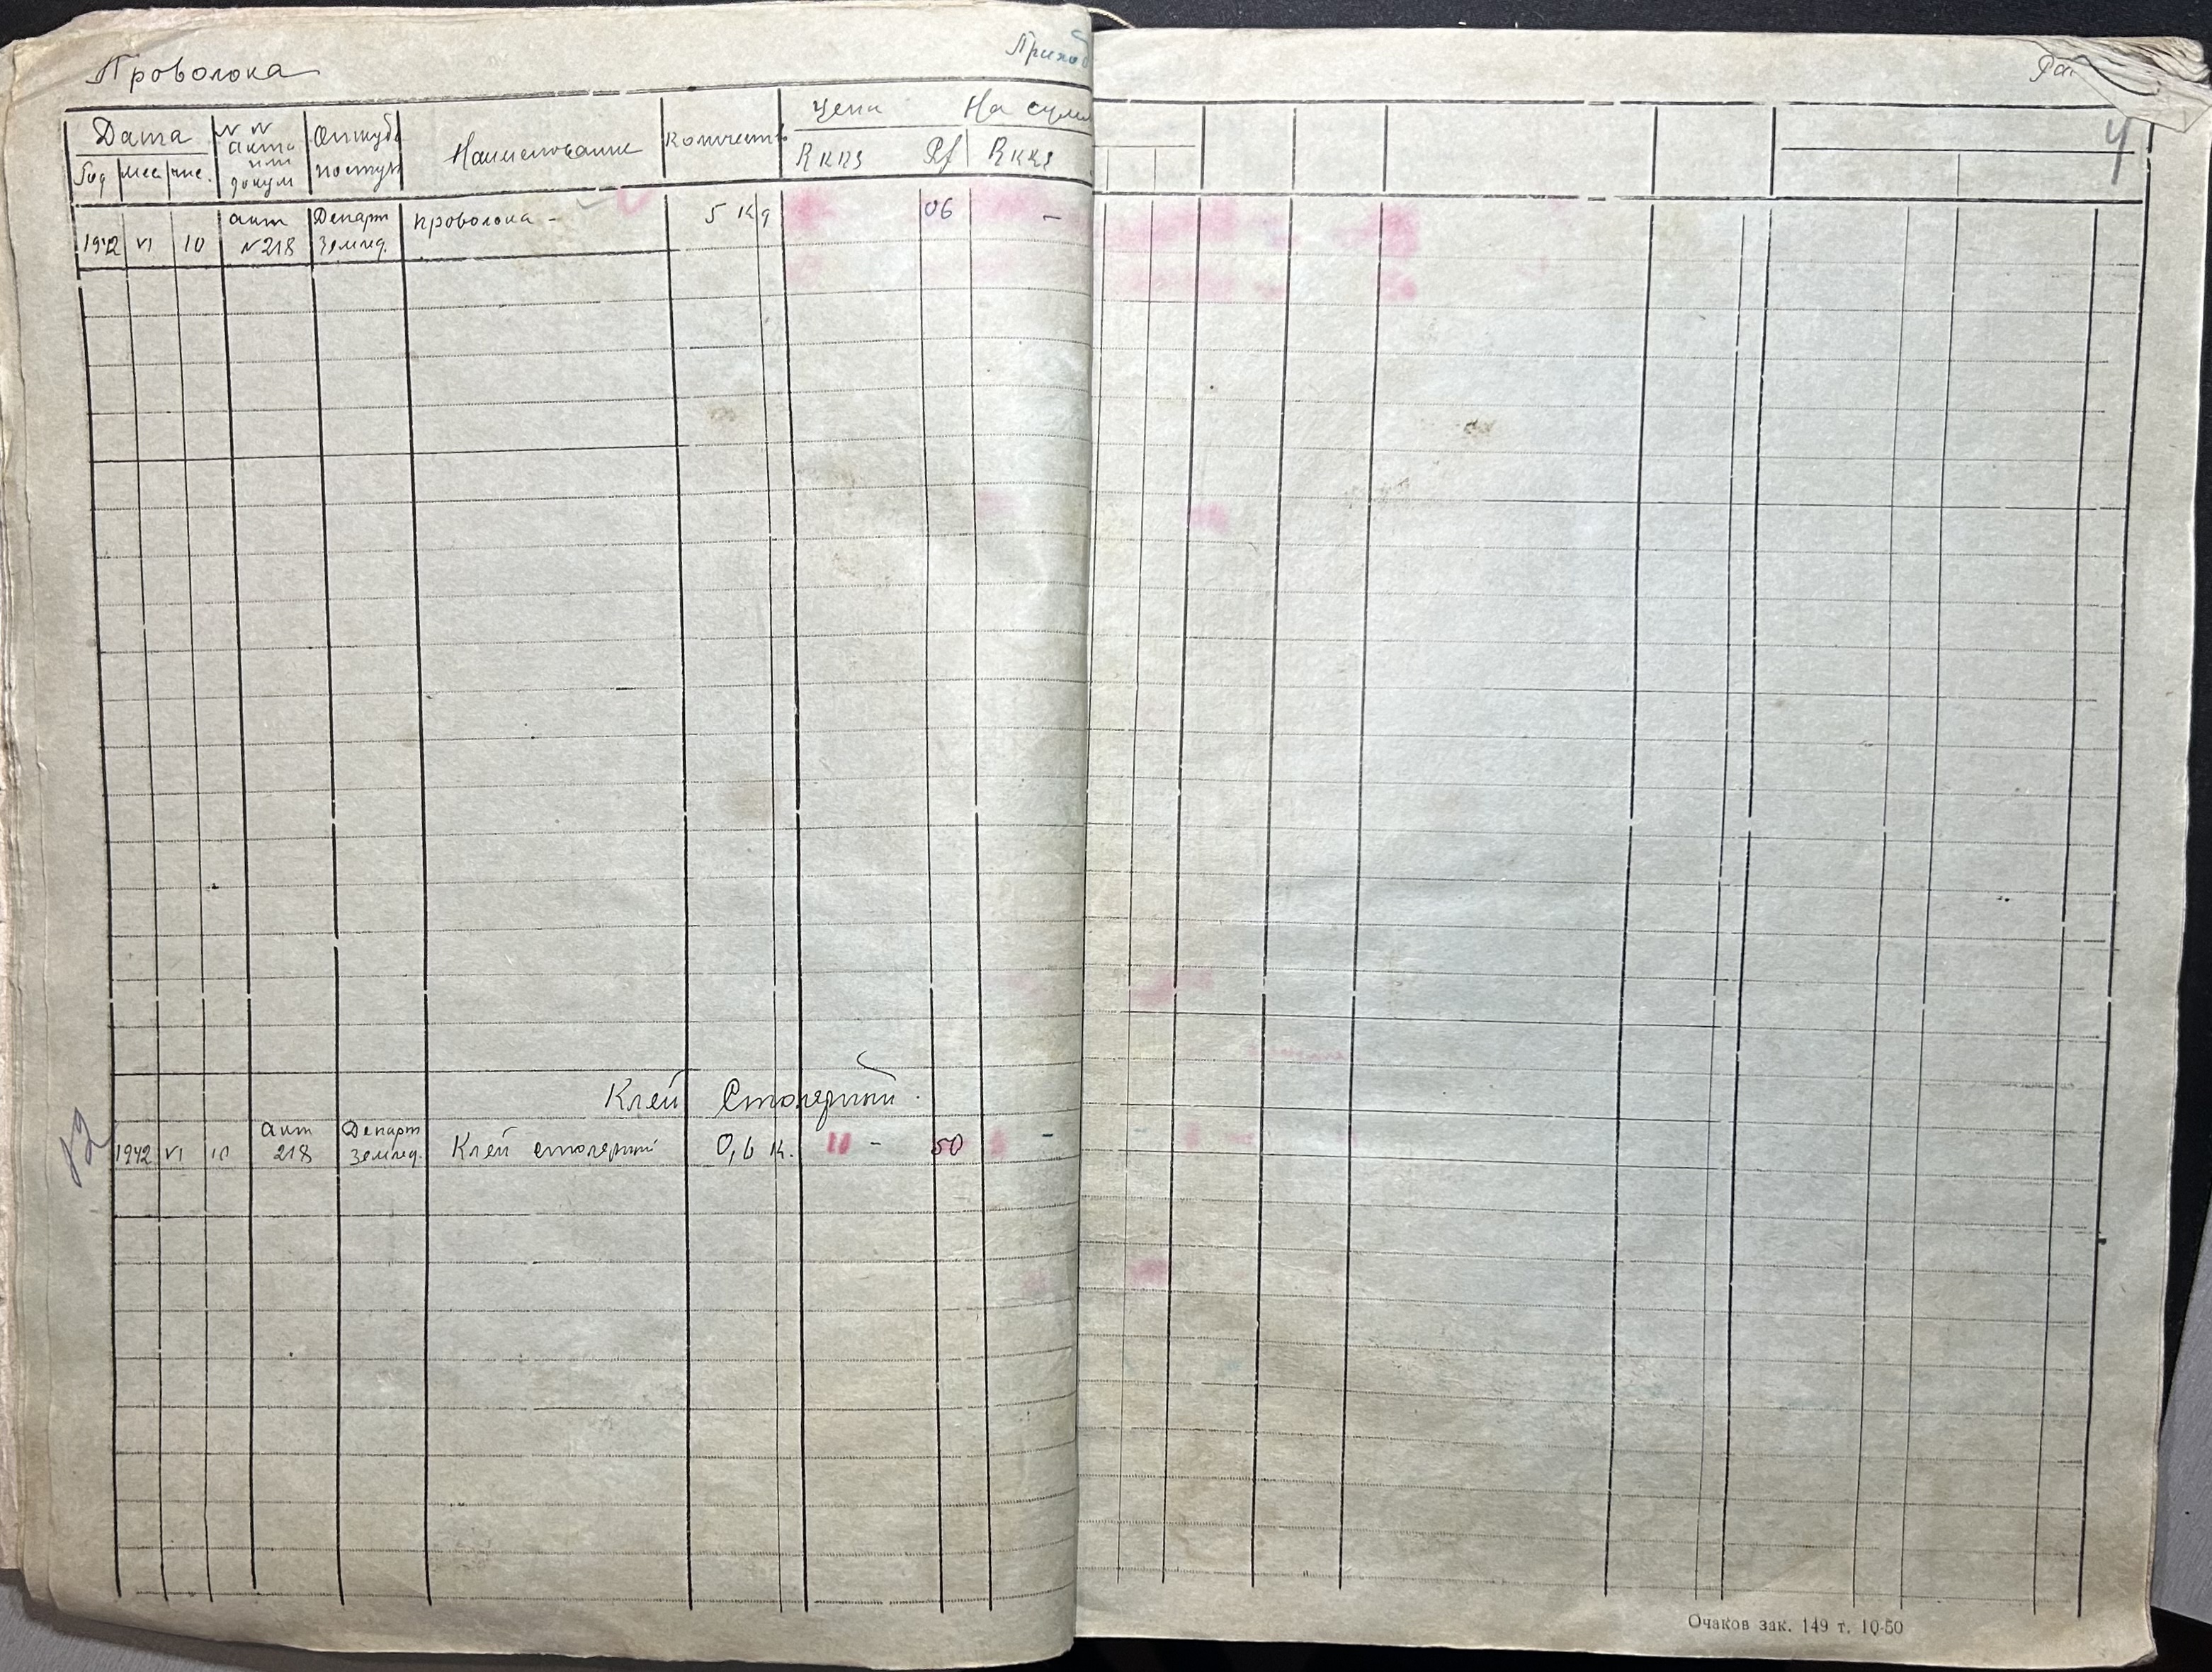 Проволока
Приход
Дата
Год мес чис.
N N акта или докум
Откуда поступ
Наименование
Количеств
Цена На сумм
RKKS Rf RKKS
4
1942 VI 10 акт N 218 Департ Землед. проволока - 5 Kg 06 -
Клей Столярный.
12
1942 VI 10 акт 218 Департ Землед. Клей столярный 0,6 К. - 50 -
Очаков зак. 149 т. 10-50